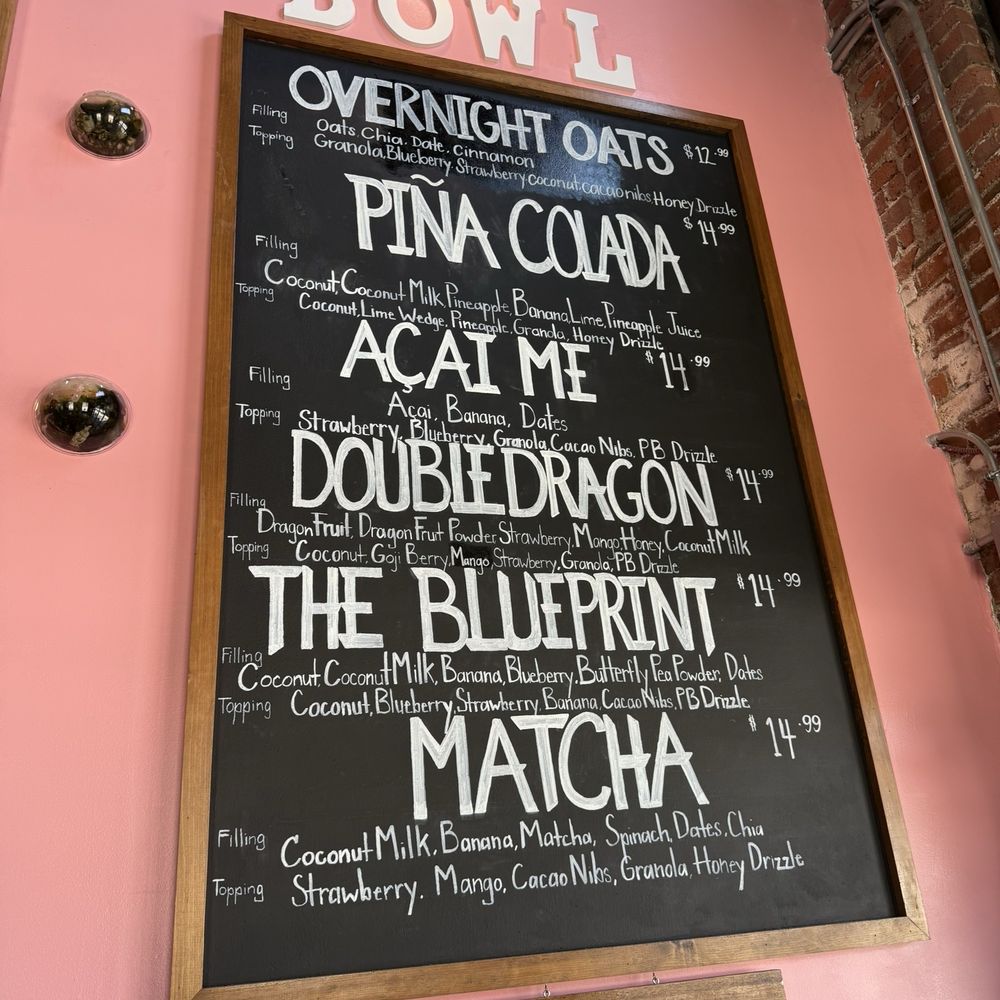 BOWL
OVERNIGHT OATS $12.99
Filling Oats, Chia, Date, Cinnamon
Topping Granola, Blueberry, Strawberry, coconut, cacao nibs, Honey Drizzle
PIÑA COLADA $14.99
Filling Coconut, Coconut Milk, Pineapple, Banana, Lime, Pineapple Juice
Topping Coconut, Lime Wedge, Pineapple, Granola, Honey Drizzle
AÇAI ME $14.99
Filling Açai, Banana, Dates
Topping Strawberry, Blueberry, Granola, Cacao Nibs, PB Drizzle
DOUBLE DRAGON $14.99
Filling Dragon Fruit, Dragon Fruit Powder, Strawberry, Mango, Honey, Coconut Milk
Topping Coconut, Goji Berry, Mango, Strawberry, Granola, PB Drizzle
THE BLUEPRINT $14.99
Filling Coconut, Coconut Milk, Banana, Blueberry, Butterfly Pea Powder, Dates
Topping Coconut, Blueberry, Strawberry, Banana, Cacao Nibs, PB Drizzle
MATCHA $14.99
Filling Coconut Milk, Banana, Matcha, Spinach, Dates, Chia
Topping Strawberry, Mango, Cacao Nibs, Granola, Honey Drizzle